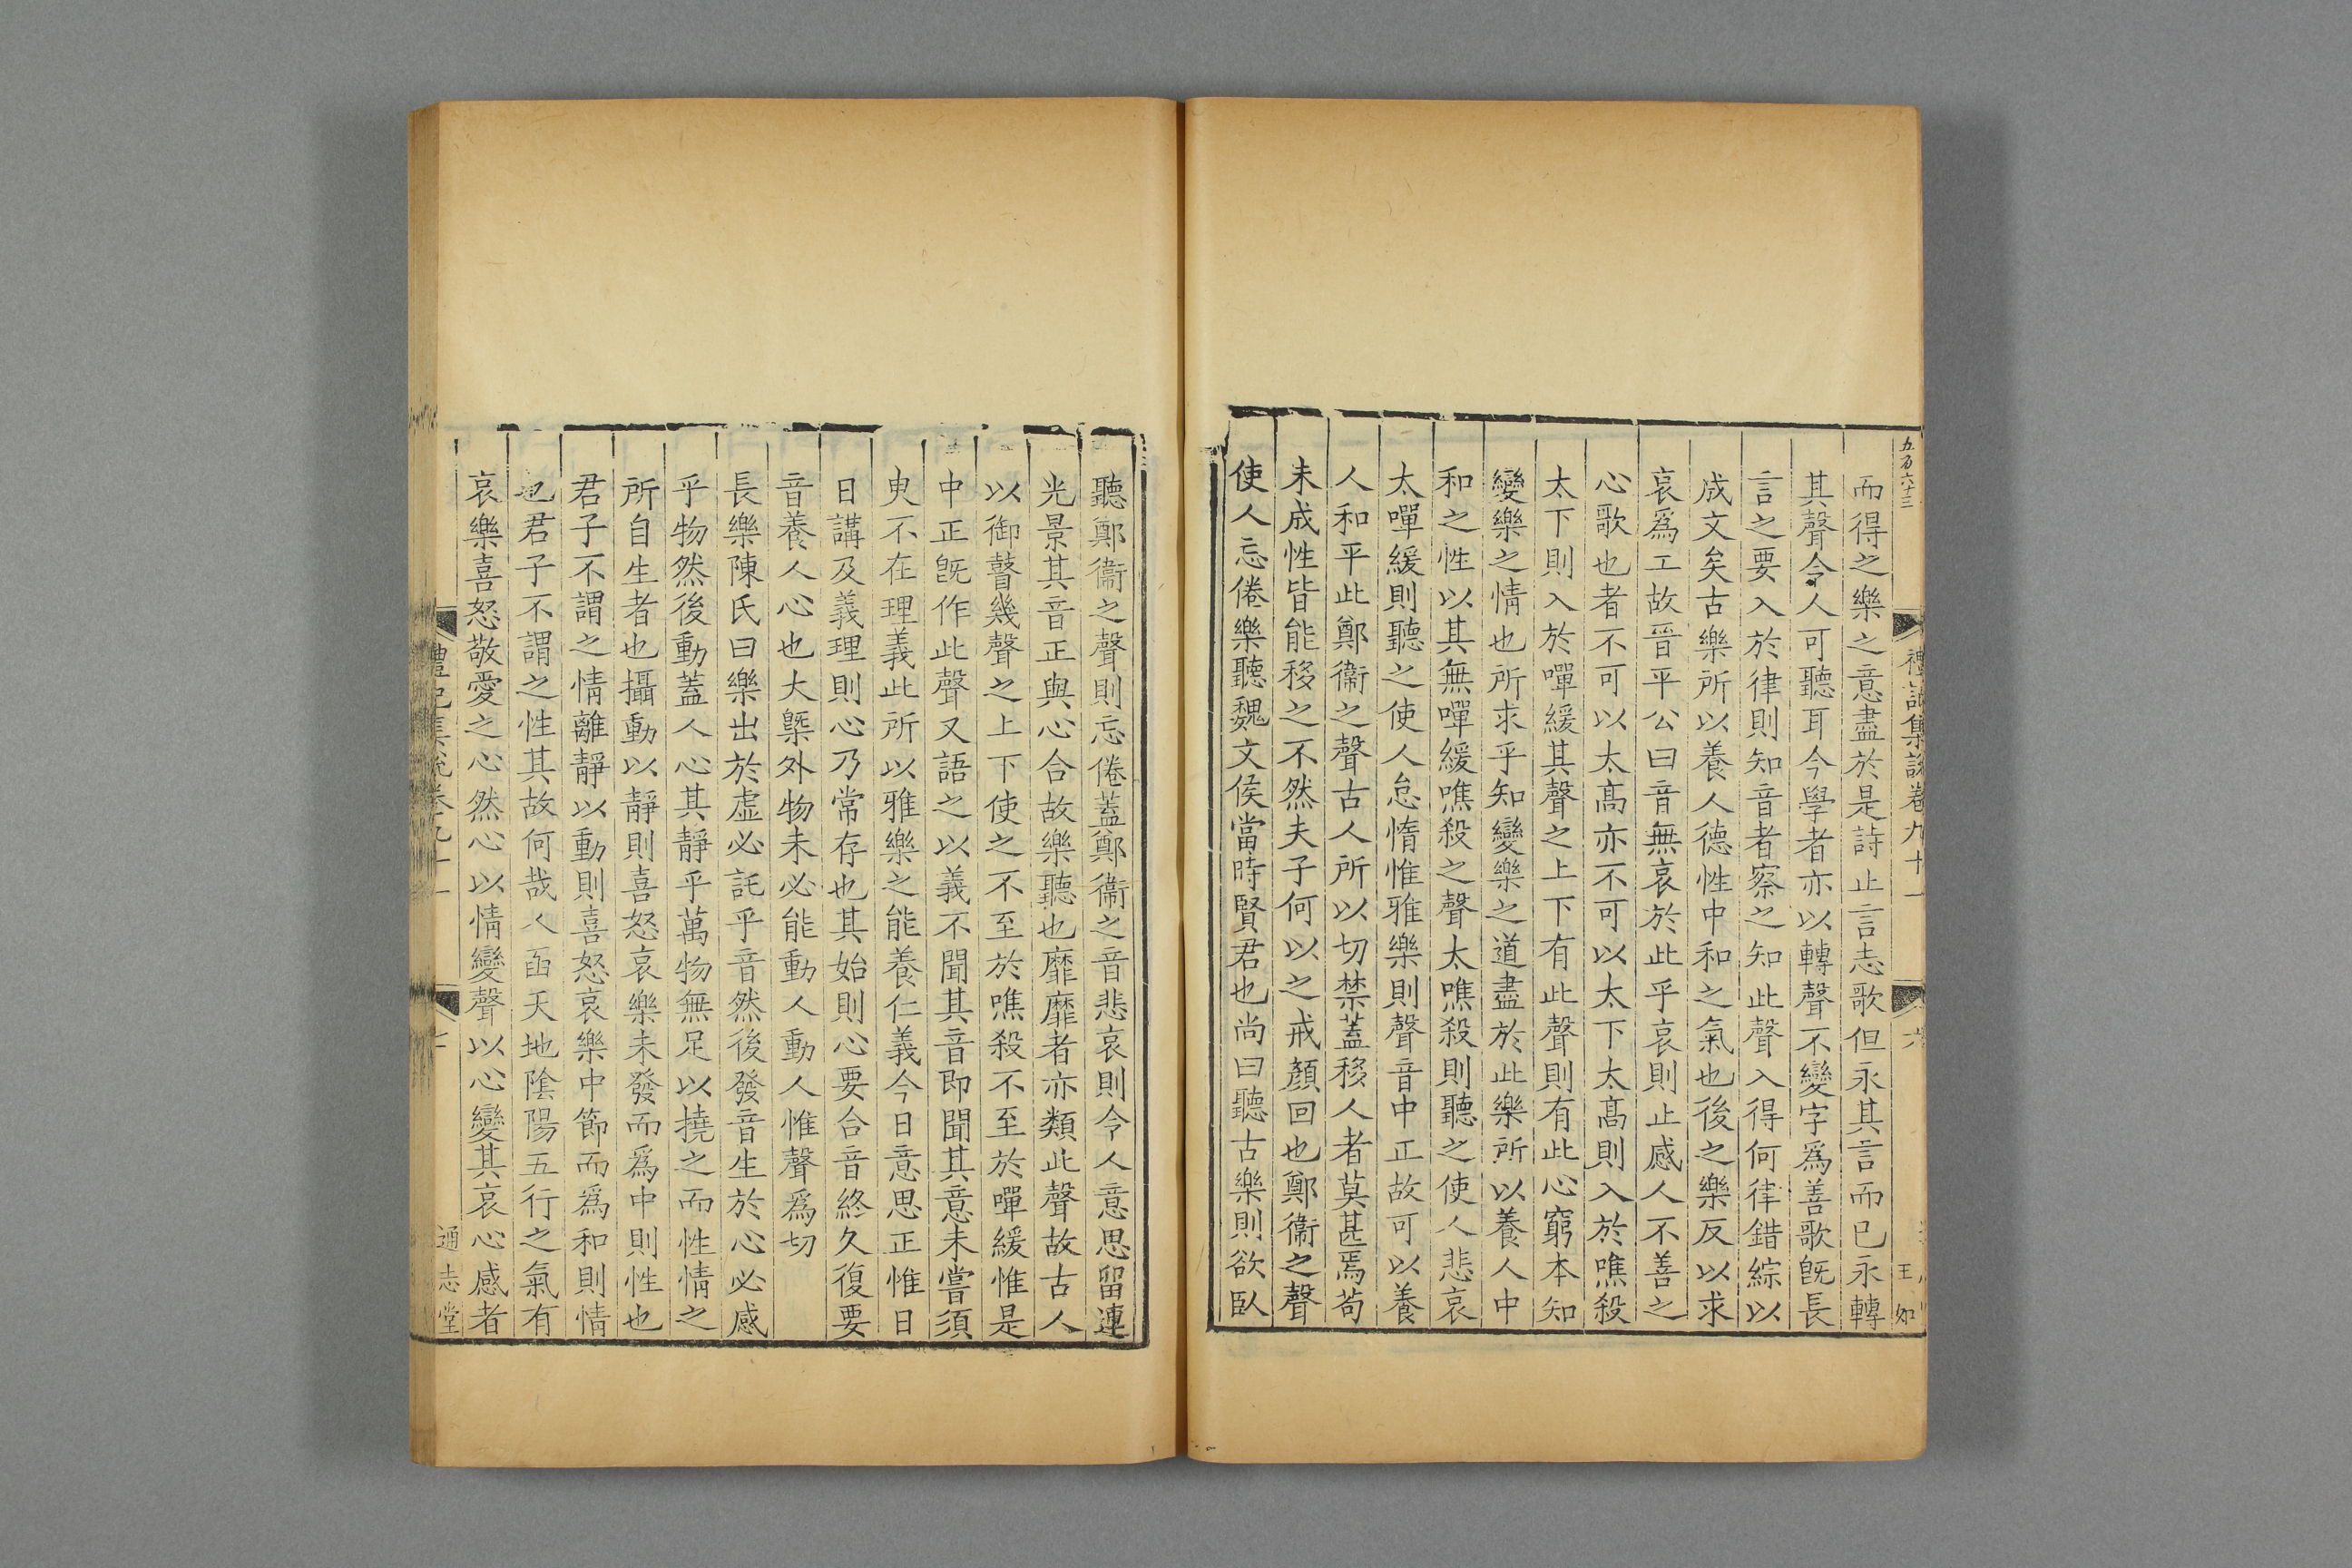 五百六十三
禮記集說卷九十一
六
王
如
而得之樂之意盡於是詩止言志歌但永其言而已永轉
其聲令人可聽耳今學者亦以轉聲不變字爲善歌旣長
言之要入於律則知音者察之知此聲入得何律錯綜以
成文矣古樂所以養人德性中和之氣也後之樂反以求
哀爲工故晉平公曰音無哀於此乎哀則止感人不善之
心歌也者不可以太高亦不可以太下太高則入於噍殺
太下則入於嘽緩其聲之上下有此聲則有此心窮本知
變樂之情也所求乎知變樂之道盡於此樂所以養人中
和之性以其無嘽緩噍殺之聲太噍殺則聽之使人悲哀
太嘽緩則聽之使人怠惰惟雅樂則聲音中正故可以養
人和平此鄭衞之聲古人所以切禁蓋移人者莫甚焉苟
未成性皆能移之不然夫子何以之戒顏回也鄭衞之聲
使人忘倦樂聽魏文侯當時賢君也尚曰聽古樂則欲臥
聽鄭衞之聲則忘倦蓋鄭衞之音悲哀則令人意思留連
光景其音正與心合故樂聽也靡靡者亦類此聲故古人
以御瞽幾聲之上下使之不至於噍殺不至於嘽緩惟是
中正旣作此聲又語之以義不聞其音即聞其意未嘗須
臾不在理義此所以雅樂之能養仁義今日意思正惟日
日講及義理則心乃常存也其始則心要合音終久復要
音養人心也大槩外物未必能動人動人惟聲爲切
長樂陳氏曰樂出於虛必託乎音然後發音生於心必感
乎物然後動蓋人心其靜乎萬物無足以撓之而性情之
所自生者也攝動以靜則喜怒哀樂未發而爲中則性也
君子不謂之情離靜以動則喜怒哀樂中節而爲和則情
也君子不謂之性其故何哉人函天地陰陽五行之氣有
哀樂喜怒敬愛之心然心以情變聲以心變其哀心感者
禮記集說卷九十一
七
通志堂